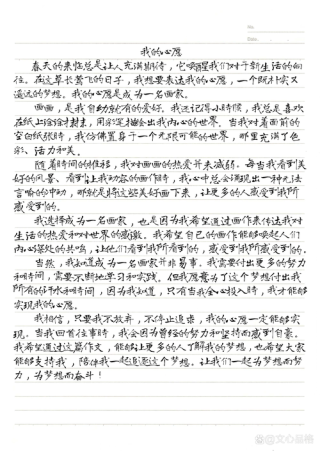 No.
Date
我的心愿
春天的来临总是让人充满期待，它唤醒我们对于新生活的向
往。在这草长莺飞的日子，我想要表达我的心愿，一个既朴实又
遥远的梦想。我的心愿是成为一名画家。
画画，是我自幼就有的爱好。我还记得小时候，我总是喜欢
在纸上涂涂抹抹，用彩笔描绘出我内心的世界。当我对着面前的
空白纸张时，我仿佛置身于一个无限可能的世界，那里充满了色
彩、活力和美。
随着时间的推移，我对画画的热爱并未减弱。每当我看到美
好的风景、看到让我动容的画作时，我心中总会涌现出一种无法
言喻的冲动，那就是将这些美好画下来，让更多的人感受到我所
感受到的。
我选择成为一名画家，也是因为我希望通过画作来传达我对
生活的热爱和对世界的感激。我希望自己的画作能够唤起人们
内心深处的共鸣，让他们看到我所看到的，感受到我所感受到的。
当然，我知道成为一名画家并非易事。我需要付出更多的努力
和时间，需要不断地学习和实践。但我愿意为了这个梦想付出我
所有的汗水和时间，因为我知道，只有当我全心投入时，我才能够
实现我的心愿。
我相信，只要我不放弃，不停止追求，我的心愿一定能够实
现。当我回首往事时，我会因为曾经的努力和坚持而感到自豪。
我希望通过这篇作文，能够让更多的人了解我的梦想，也希望大家
能够支持我，陪伴我一起追逐这个梦想。让我们一起为梦想而努
力，为梦想而奋斗！
@文心品格